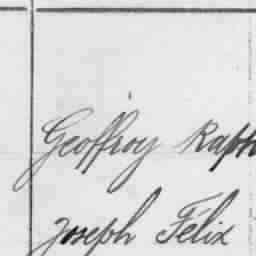 Geoffroy Raph
Joseph Félix